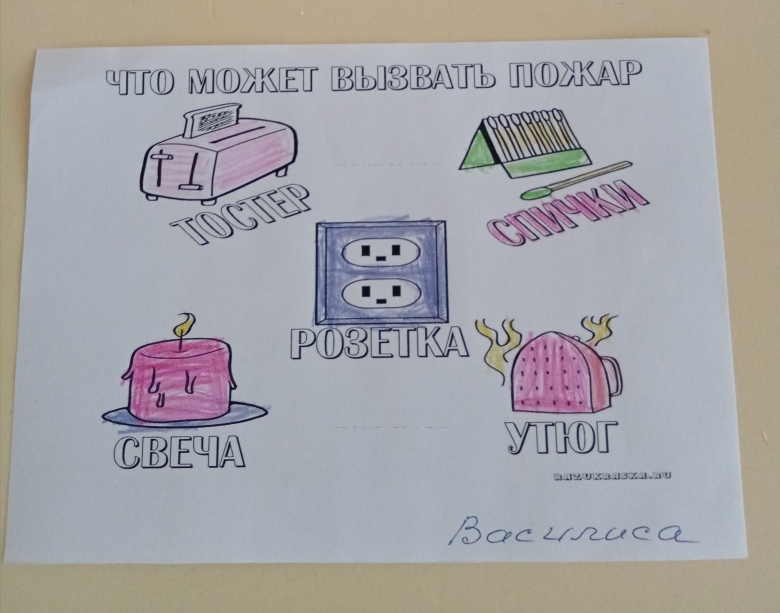 ЧТО МОЖЕТ ВЫЗВАТЬ ПОЖАР
ТОСТЕР
СПИЧКИ
РОЗЕТКА
СВЕЧА
УТЮГ
RAZUKRASKA.RU
Василиса